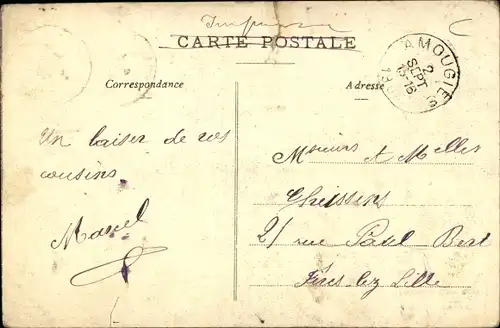 Imprimé
CARTE POSTALE
AMOUGIES
2
SEPT
15-16
13
Correspondance
Adresse
Un baiser de vos
cousins
Marcel
Messieurs et Melles
Ghissens
21 rue Paul Bert
Fives-lez-Lille